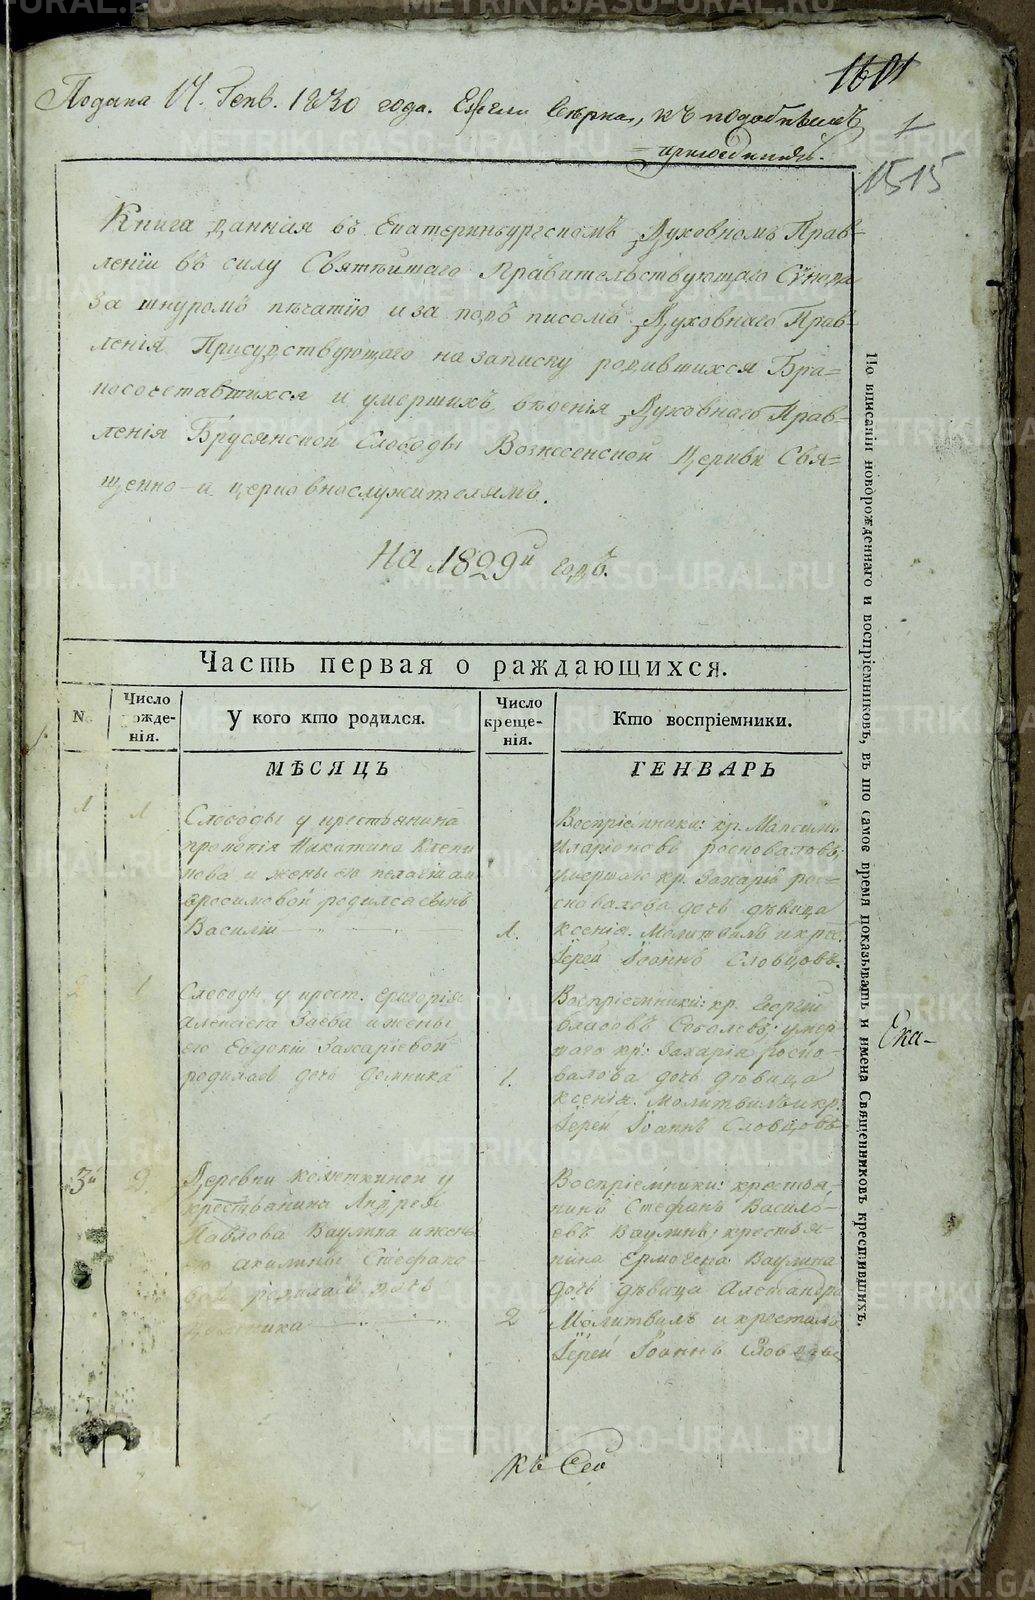 1601
Подана 17. Генв. 1830 года. Если верна, къ подобнымъ
приобщить.
1
1515
Книга данная въ Екатеринбургскомъ Духовномъ Прав-
леніи въ силу Святѣйшаго Правительствующаго Сѵнода
за шнуромъ печатію и за подъ писомъ Духовнаго Прав-
ленія Присудствующаго на записку родившихся Бра-
косочетавшихся и умершихъ, вѣденія Духовнаго Прав-
ленія Брусянской Слободы Вознесенской Церкви Свя-
щенно- и церковнослужителямъ.
На 1829й годъ.
Часть первая о раждающихся.
№
Число рожде-нія.
У кого кто родился.
Число креще-нія.
Кто воспріемники.
МѢСЯЦЪ
ГЕНВАРЬ
1
1
Слободы у крестьянина
прокопія Никитина
и жены его пелагеи
родился сынъ
Василій
1.
Воспріемники: кр. Максимъ
Иларіоновъ росковаловъ;
умершаго кр. Захаріи рос-
ковалова дочь дѣвица
ксенія. Молитвилъ и крес.
Іерей Іоаннъ Словцовъ.
2
1
Слободы у крест. григорія
Алексіева Заева и жены
его Евдокіи Захаріевой
родилась дочь Домника
1.
Воспріемники: кр. Георгій
власовъ Соболевъ; умер-
шаго кр: Захаріи роско-
валова дочь дѣвица
ксенія. Молитвилъ и кр.
Іерей Іоаннъ Словцовъ
3й
2
Деревни колюткиной у
крестьянина Андрея
Павлова Ваулина и жены
его акилины Стефано
вой родилась дочь
Домника
2
Воспріемники: крестья-
нинъ Стефанъ Василь-
евъ Ваулинъ; крестья-
нина Ермогена Ваулина
дочь дѣвица Александра
Молитвилъ и крестилъ
Іерей Іоаннъ Словцовъ
Къ Сей
По вписаніи новорожденнаго и воспріемниковъ, въ то самое время показывать и имена Священниковъ крестившихъ.
Ека-
METRIKI.GASO-URAL.RU